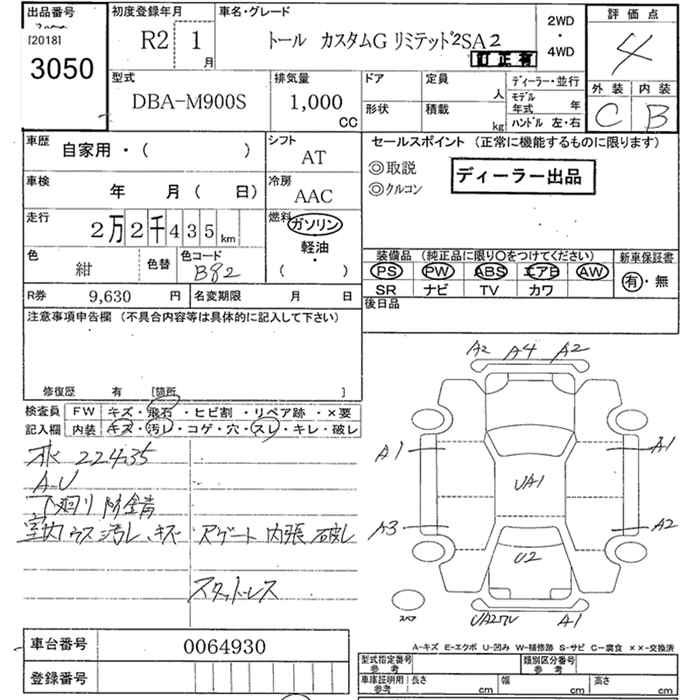 出品番号
[2018]
3050
初度登録年月
R2 1 月
車名・グレード
トール カスタムG リミテッド2SA2
訂正有
2WD
・
4WD
評価点
4
外装 内装
C B
型式
DBA-M900S
排気量
1,000
CC
ドア
形状
定員
人
積載
kg
ディーラー・並行
モデル年式 年
ハンドル 左・右
車歴
自家用・( )
シフト
AT
車検
年 月( 日)
冷房
AAC
走行
2万2千435km
燃料
ガソリン
軽油
・
( )
色
紺
色替
色コード
B82
R券 9,630 円
名変期限 月 日
セールスポイント (正常に機能するものに限ります)
◎取説
◎クルコン
ディーラー出品
装備品 (純正品に限り○をつけてください)
PS PW ABS エアB AW
SR ナビ TV カワ
新車保証書
有・無
後日品
注意事項申告欄 (不具合内容等は具体的に記入して下さい)
修復歴 有 [箇所 ]
検査員記入欄
FW キズ・飛石・ヒビ割・リペア跡・×要
内装 キズ・汚レ・コゲ・穴・スレ・キレ・破レ
水 22435
A-U
下廻り 防錆
室内ウス汚レ、キズ Rゲート 内張 破レ
スタットレス
A2 A4 A2
A1 A1
UA1
A3 A2
U2
UA2ワレ A1
スペア
A-キズ E-エクボ U-凹み W-補修跡 S-サビ C-腐食 ××-交換済
車台番号 0064930
登録番号
型式指定番号
参考
類別区分番号
参考
車庫証明用
参考
長さ cm 幅 cm 高さ cm